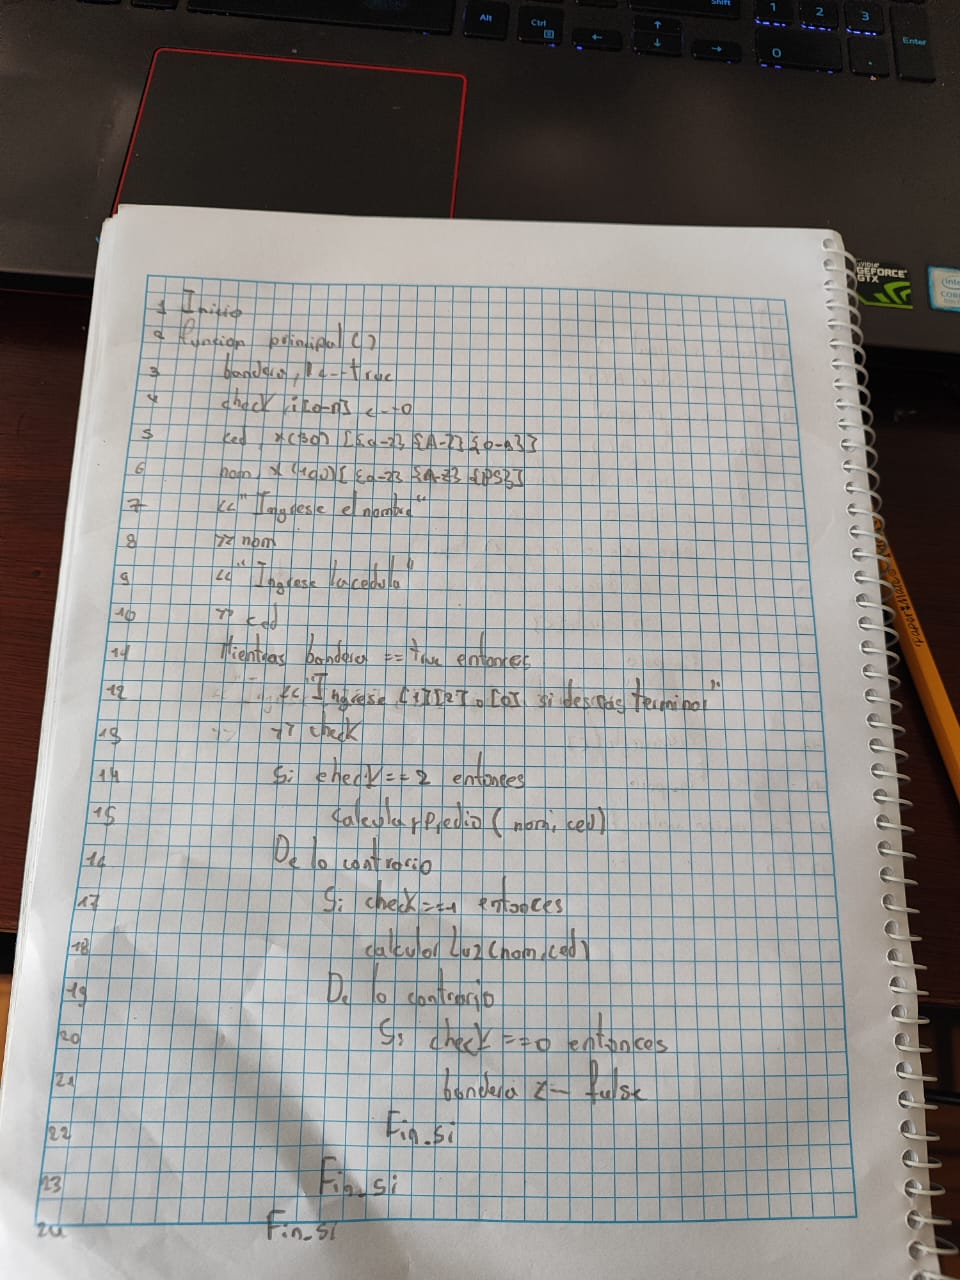 Alt
Ctrl
Shift
1
2
3
Enter
0
.
NVIDIA
GEFORCE
GTX
CORE
1 Inicio
2 funcion principal ()
3 bandera, l <-- true
4 check, i[0-n] <--0
5 ced, x(30) [{a-z} {A-Z} {0-n}]
6 nom, x (100) [{a-z} {A-Z} {PS}]
7 <<"Ingrese el nombre"
8 >> nom
9 <<"Ingrese la cedula"
10 >> ced
11 Mientras bandera == true entonces
12 <<"Ingrese [1][2] o [0] si deseas terminar"
13 >> check
14 Si check == 2 entonces
15 calcular Predio (nom, ced)
16 De lo contrario
17 Si check == 1 entonces
18 calcular Luz (nom, ced)
19 De lo contrario
20 Si check == 0 entonces
21 bandera <-- false
22 Fin_si
23 Fin_si
24 Fin_si